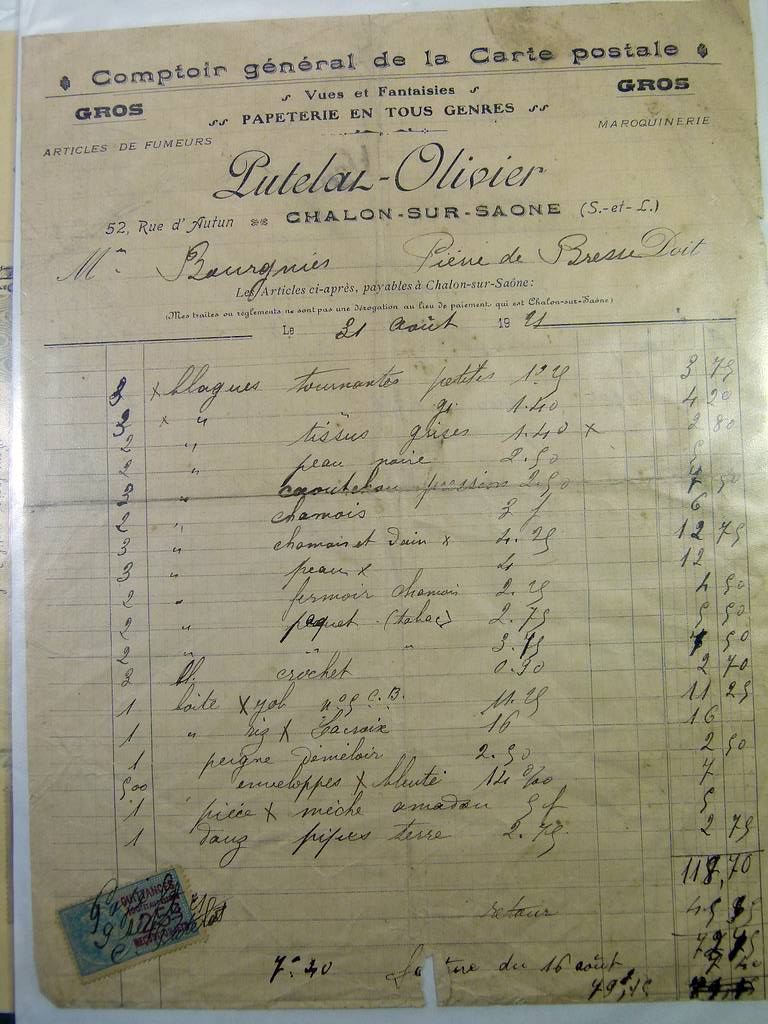 Comptoir général de la Carte postale
GROS Vues et Fantaisies GROS
PAPETERIE EN TOUS GENRES
ARTICLES DE FUMEURS MAROQUINERIE
Putelat-Olivier
52, Rue d'Autun CHALON-SUR-SAONE (S.-et-L.)
M Bourgnies Pierre de Bresse Doit
Les Articles ci-après, payables à Chalon-sur-Saône:
(Mes traites ou règlements ne sont pas une dérogation au lieu de paiement, qui est Chalon-sur-Saône)
Le 31 Août 1921
3 x blagues tournantes petites 1.25 3 75
3 x " " gr. 1.40 4 20
2 " tissus grises 1.40 x 2 80
2 " peau noire 2.50 5
" caoutchou pression 2.50 7 50
2 " chamois 3 f 6
3 " chamois et dain x 4.25 12 75
3 " peau x 4 12
2 " fermoir chamois 2.25 4 50
2 " paquet (tabac) 2.75 5 50
2 " " " 3.75 7 50
3 crochet 0.90 2 70
1 boite x job n° 5 C.B. 11.25 11 25
1 " riz x Lacroix 16 16
1 peigne démêloir 2.50 2 50
500 enveloppes x bleuté 14 %00 7
1 pièce x mèche amadou 5 f 5
1 douz pipes terre 2.75 2 75
118,70
retour 45
QUITTANCES
7.40 du 16 août 7 40
79,15